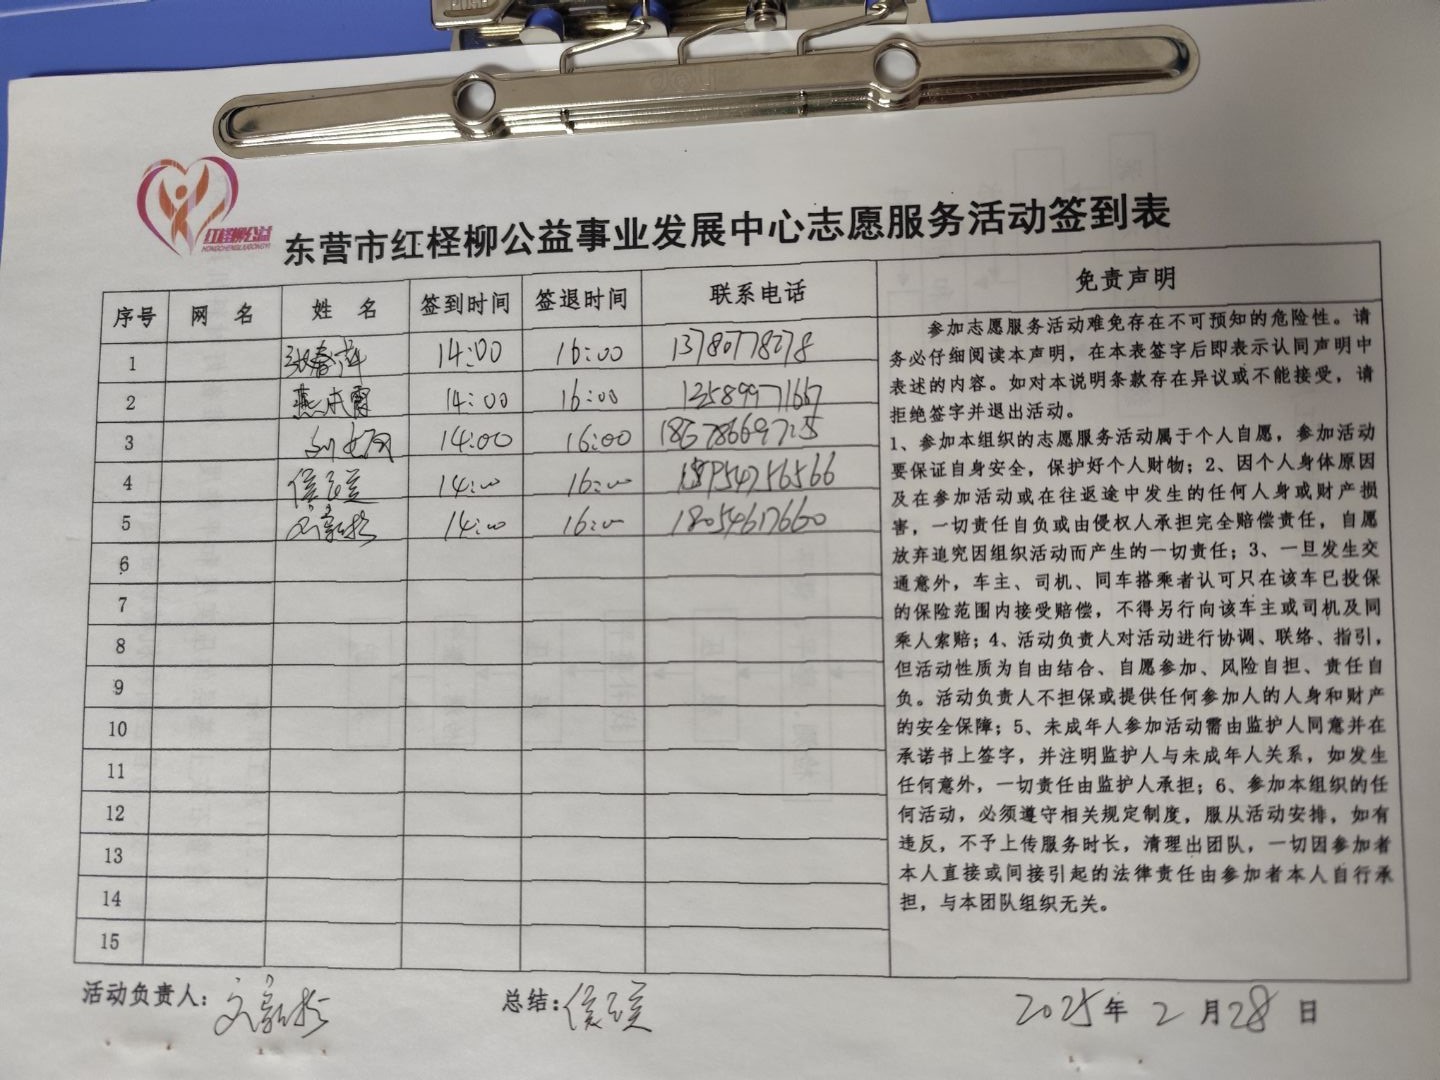 红柽柳公益
HONGCHENGLIUGONGYI
东营市红柽柳公益事业发展中心志愿服务活动签到表
序号 网 名 姓 名 签到时间 签退时间 联系电话 免责声明
1 张春萍 14:00 16:00 13780778278
2 14:00 16:00
3 14:00 16:00
4 14:00 16:00 18954756566
5 14:00 16:00 18054617660
6
7
8
9
10
11
12
13
14
15
参加志愿服务活动难免存在不可预知的危险性。请
务必仔细阅读本声明，在本表签字后即表示认同声明中
表述的内容。如对本说明条款存在异议或不能接受，请
拒绝签字并退出活动。
1、参加本组织的志愿服务活动属于个人自愿，参加活动
要保证自身安全，保护好个人财物；2、因个人身体原因
及在参加活动或在往返途中发生的任何人身或财产损
害，一切责任自负或由侵权人承担完全赔偿责任，自愿
放弃追究因组织活动而产生的一切责任；3、一旦发生交
通意外，车主、司机、同车搭乘者认可只在该车已投保
的保险范围内接受赔偿，不得另行向该车主或司机及同
乘人索赔；4、活动负责人对活动进行协调、联络、指引，
但活动性质为自由结合、自愿参加、风险自担、责任自
负。活动负责人不担保或提供任何参加人的人身和财产
的安全保障；5、未成年人参加活动需由监护人同意并在
承诺书上签字，并注明监护人与未成年人关系，如发生
任何意外，一切责任由监护人承担；6、参加本组织的任
何活动，必须遵守相关规定制度，服从活动安排，如有
违反，不予上传服务时长，清理出团队，一切因参加者
本人直接或间接引起的法律责任由参加者本人自行承
担，与本团队组织无关。
活动负责人： 总结： 2025年 2 月28 日